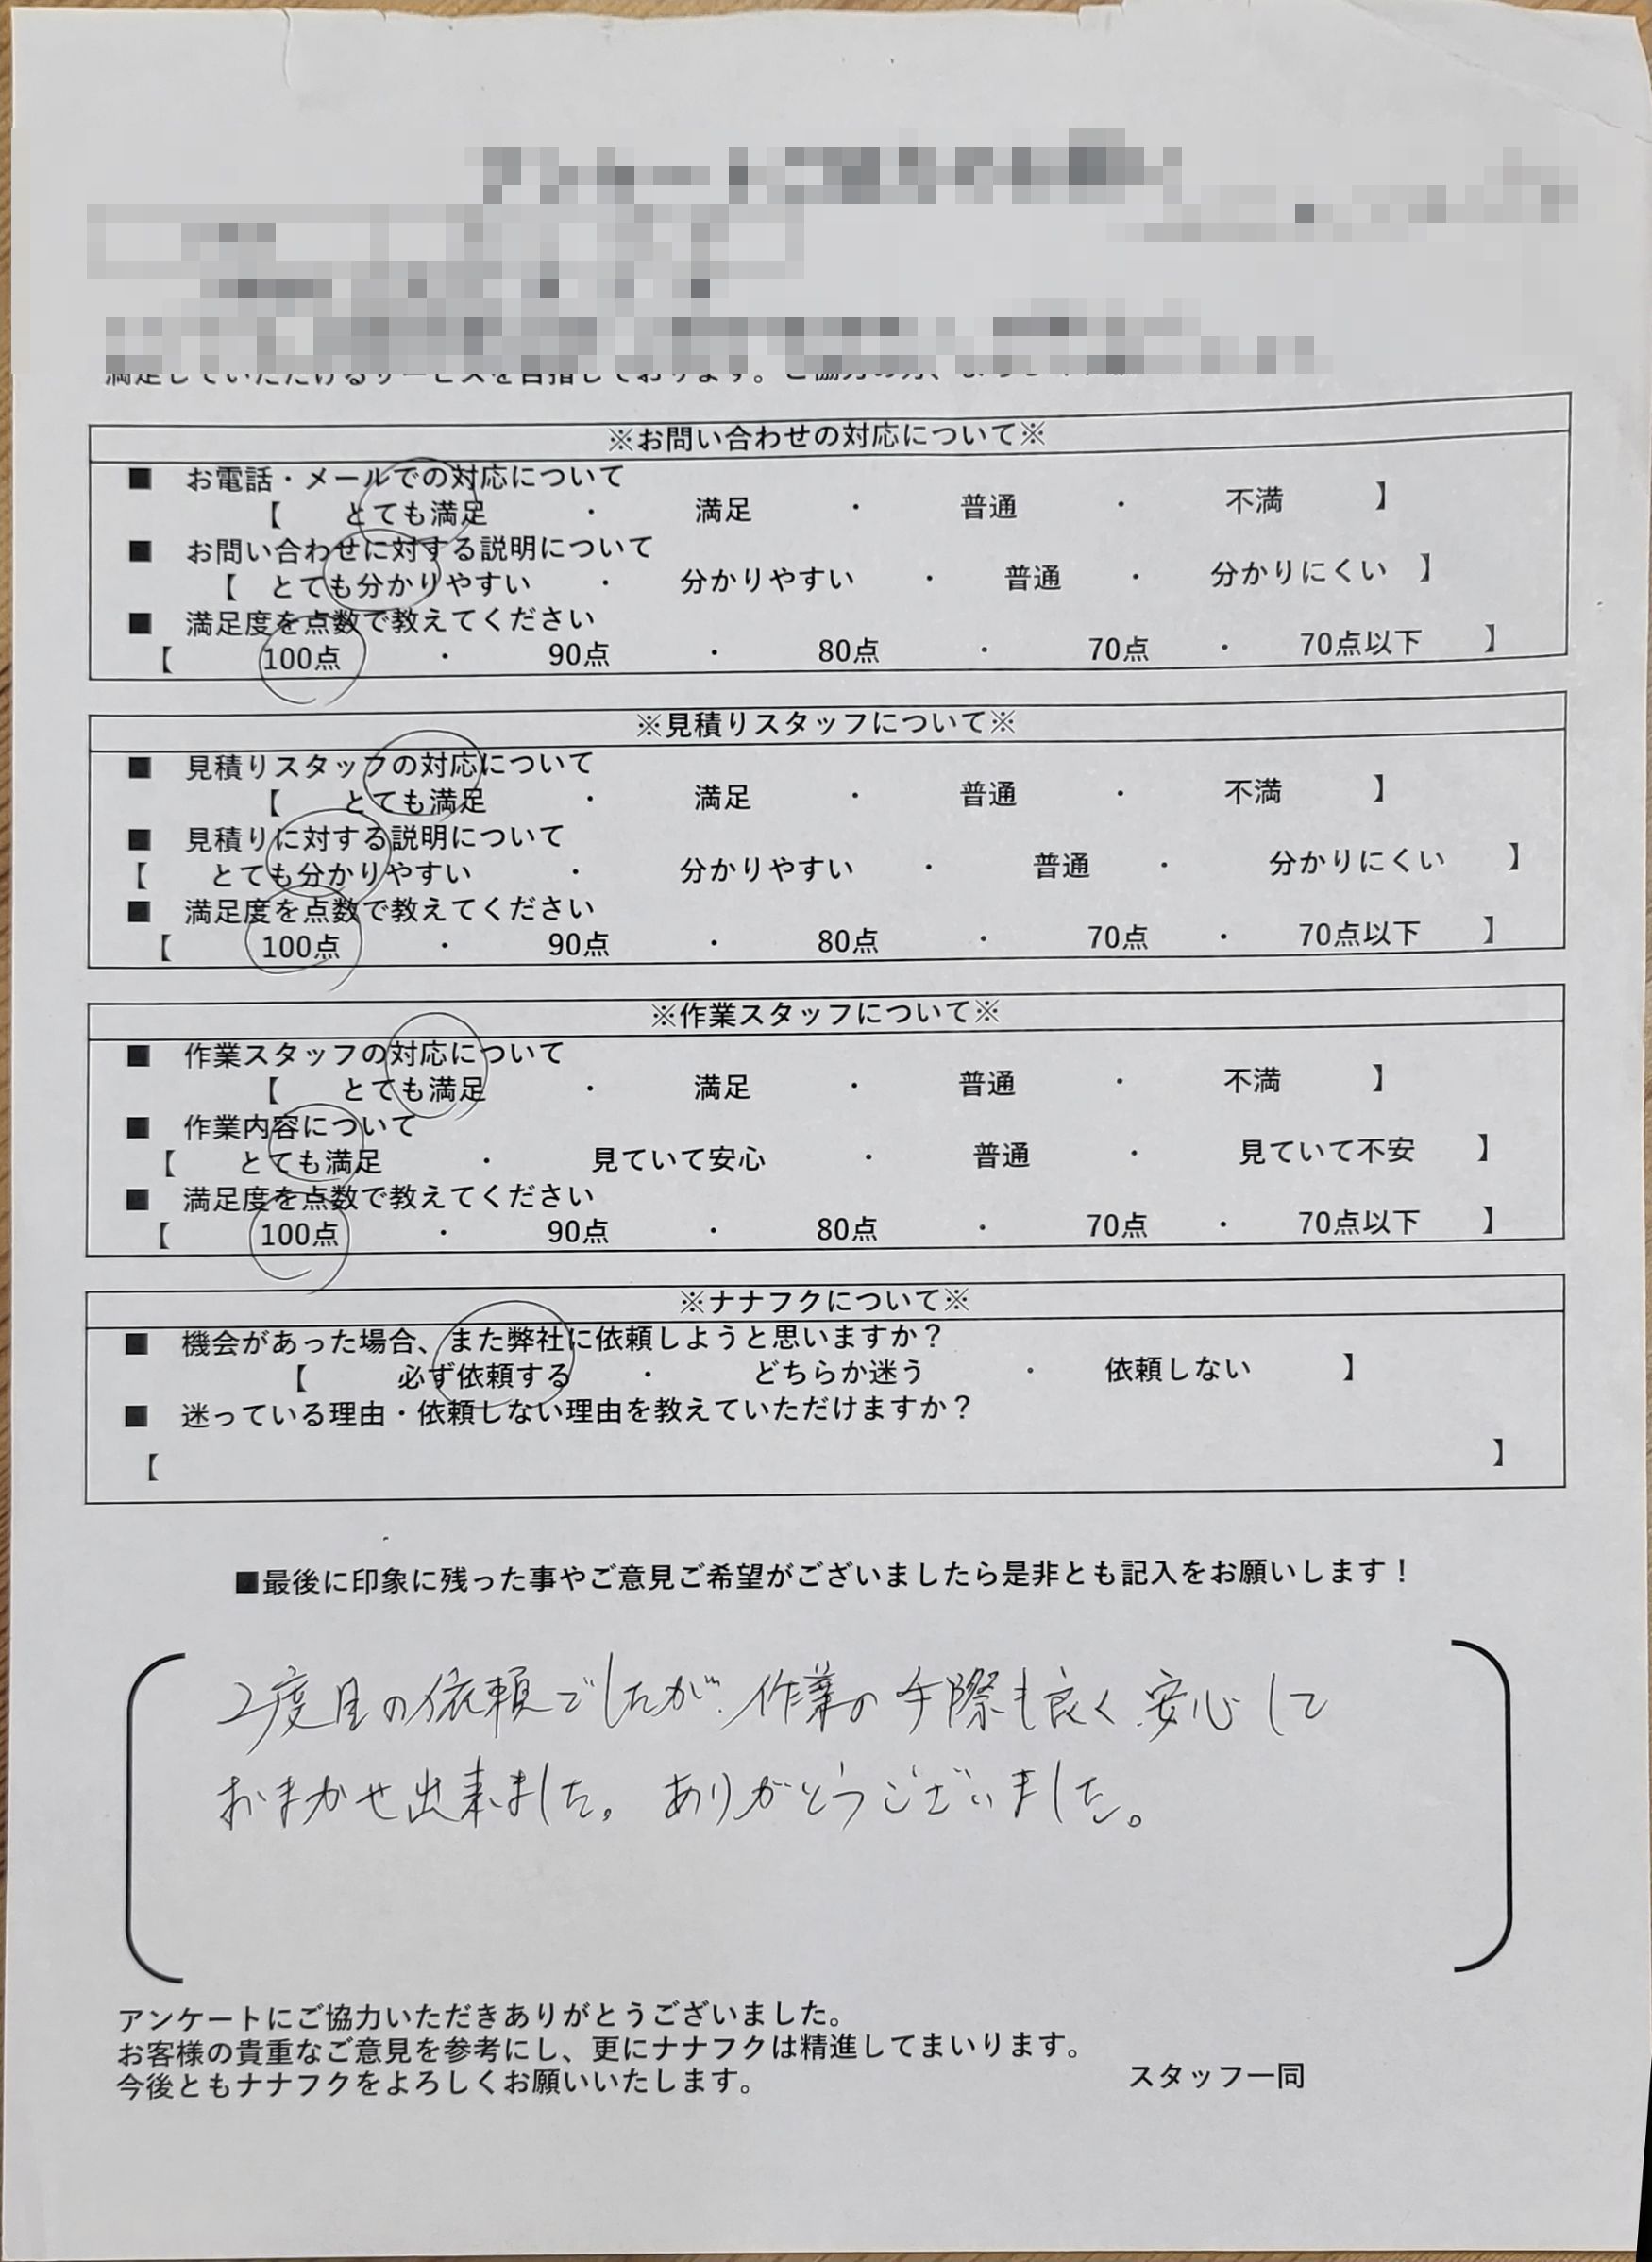 満足していただけるサービスを目指しております。ご協力の方、よろ
※お問い合わせの対応について※
■ お電話・メールでの対応について
【 とても満足 ・ 満足 ・ 普通 ・ 不満 】
■ お問い合わせに対する説明について
【 とても分かりやすい ・ 分かりやすい ・ 普通 ・ 分かりにくい 】
■ 満足度を点数で教えてください
【 100点 ・ 90点 ・ 80点 ・ 70点 ・ 70点以下 】
※見積りスタッフについて※
■ 見積りスタッフの対応について
【 とても満足 ・ 満足 ・ 普通 ・ 不満 】
■ 見積りに対する説明について
【 とても分かりやすい ・ 分かりやすい ・ 普通 ・ 分かりにくい 】
■ 満足度を点数で教えてください
【 100点 ・ 90点 ・ 80点 ・ 70点 ・ 70点以下 】
※作業スタッフについて※
■ 作業スタッフの対応について
【 とても満足 ・ 満足 ・ 普通 ・ 不満 】
■ 作業内容について
【 とても満足 ・ 見ていて安心 ・ 普通 ・ 見ていて不安 】
■ 満足度を点数で教えてください
【 100点 ・ 90点 ・ 80点 ・ 70点 ・ 70点以下 】
※ナナフクについて※
■ 機会があった場合、また弊社に依頼しようと思いますか？
【 必ず依頼する ・ どちらか迷う ・ 依頼しない 】
■ 迷っている理由・依頼しない理由を教えていただけますか？
【 】
■最後に印象に残った事やご意見ご希望がございましたら是非とも記入をお願いします！
2度目の依頼でしたが、作業の手際も良く、安心して
おまかせ出来ました。ありがとうございました。
アンケートにご協力いただきありがとうございました。
お客様の貴重なご意見を参考にし、更にナナフクは精進してまいります。
今後ともナナフクをよろしくお願いいたします。 スタッフ一同